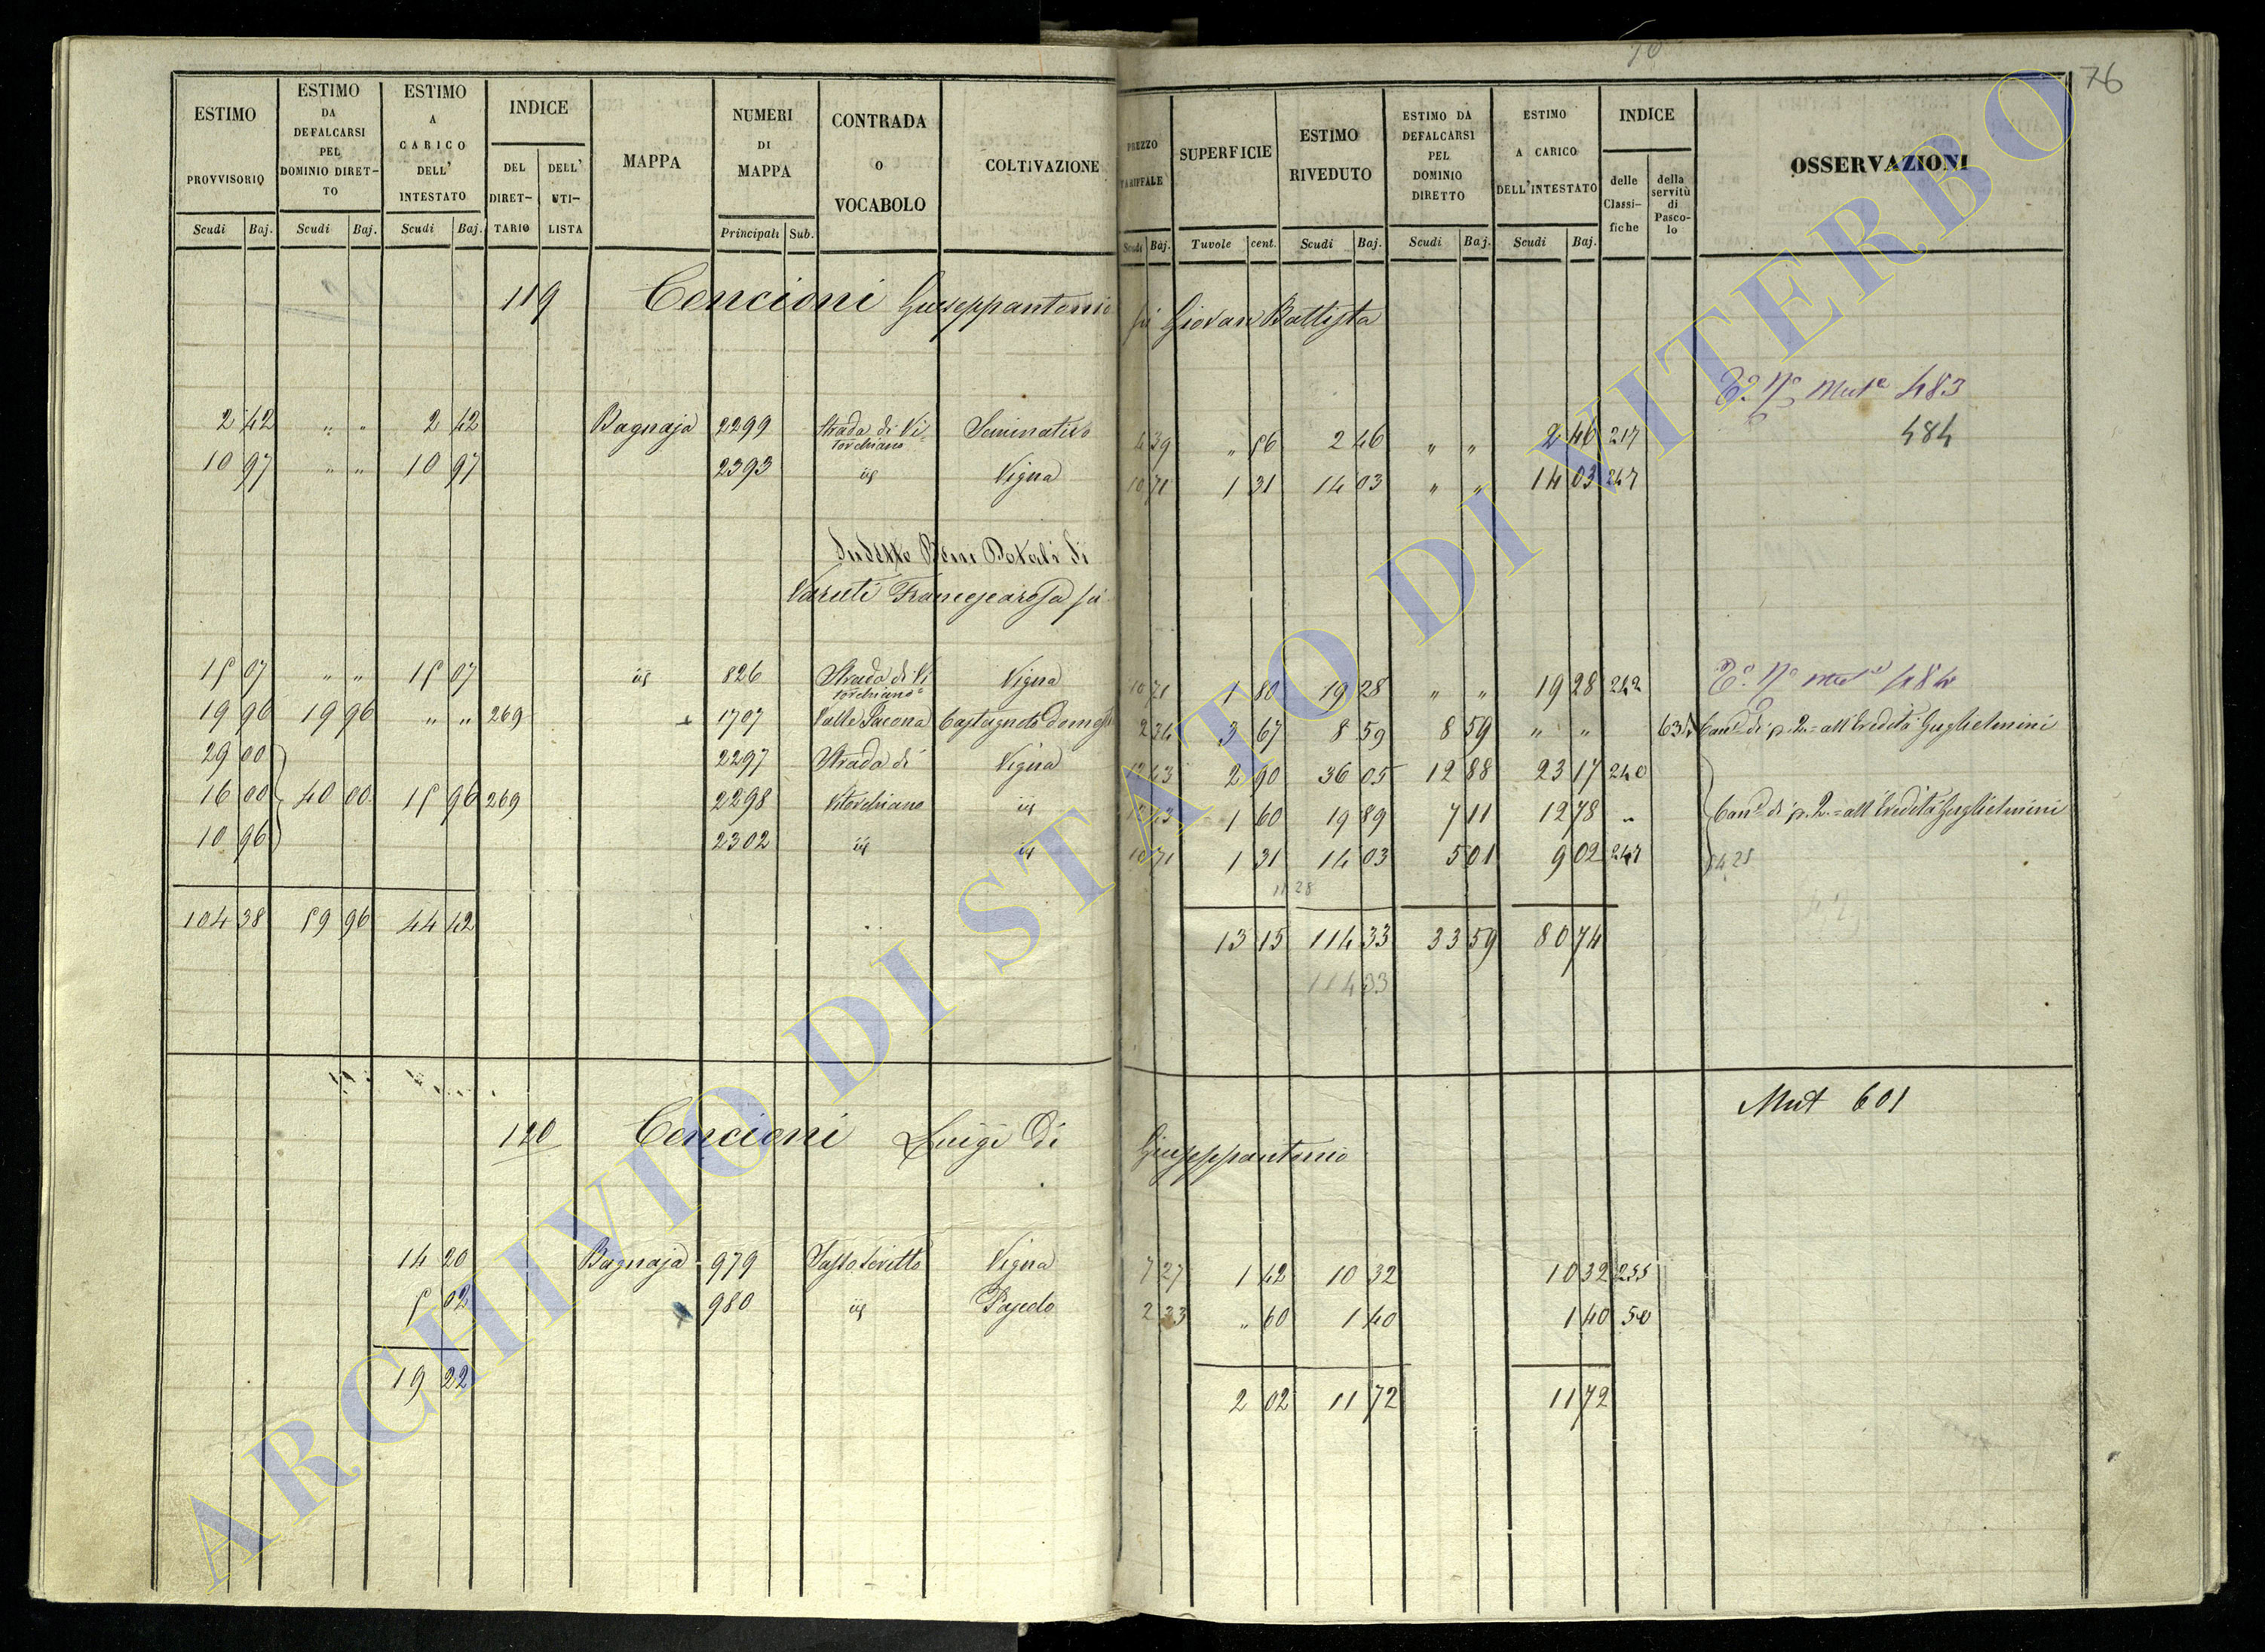 70
76
ESTIMO PROVVISORIO
ESTIMO DA DEFALCARSI PEL DOMINIO DIRET-TO
ESTIMO A CARICO DELL' INTESTATO
INDICE
DEL DIRET-TARIO
DELL' UTI-LISTA
MAPPA
NUMERI DI MAPPA
CONTRADA O VOCABOLO
COLTIVAZIONE
PREZZO TARIFFALE
SUPERFICIE
ESTIMO RIVEDUTO
ESTIMO DA DEFALCARSI PEL DOMINIO DIRETTO
ESTIMO A CARICO DELL'INTESTATO
INDICE
delle Classi-fiche
della servitù di Pasco-lo
OSSERVAZIONI
Scudi Baj. Scudi Baj. Scudi Baj. Principali Sub. Scudi Baj. Tavole cent. Scudi Baj. Scudi Baj. Scudi Baj.
119 Cencioni Giuseppantonio fu Giovan Battista
483
2 42 " " 2 42 Bagnaja 2299 Strada di Vitorchiano Seminativo 4 39 " 56 2 46 " " 2 46 217 484
10 97 " " 10 97 2393 id Vigna 10 71 1 31 14 03 " " 14 03 247
Sudetto Beni Dotali di
Varuti Francescarosa fu
15 07 " " 15 07 id 826 Strada di Vitorchiano Vigna 10 71 1 80 19 28 " " 19 28 242 484
19 96 19 96 " " 269 1707 Valle Pacona Castagneto domes 2 34 3 67 8 59 8 59 " " 634 Can.e di p. 2.= all'Eredità Guglielmini
29 00 2297 Strada di Vigna 12 43 2 90 36 05 12 88 23 17 240
16 00 40 00 15 96 269 2298 Vitorchiano id 12 43 1 60 19 89 7 11 12 78 " Can.e di p. 2.= all'Eredità Guglielmini
10 96 2302 id id 10 71 1 31 14 03 5 01 9 02 247
11 28
104 38 59 96 44 42 13 15 114 33 33 59 80 74
114 33
Mut 601
120 Cencioni Luigi di Giuseppantonio
14 20 Bagnaja 979 Sasso Scritto Vigna 7 27 1 42 10 32 10 32 255
5 02 980 id Pascolo 2 33 " 60 1 40 1 40 50
19 22 2 02 11 72 11 72
ARCHIVIO DI STATO DI VITERBO